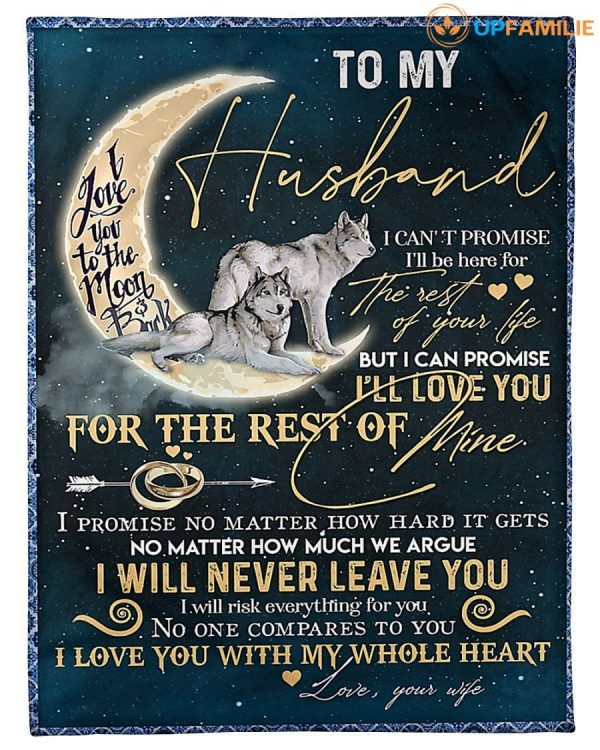 UPFAMILIE
TO MY
Husband
I Love
You
to the
Moon
& Back
I CAN'T PROMISE
I'll be here for
The rest
of your life
BUT I CAN PROMISE
I'LL LOVE YOU
FOR THE REST OF
Mine.
I PROMISE NO MATTER HOW HARD IT GETS
NO MATTER HOW MUCH WE ARGUE
I WILL NEVER LEAVE YOU
I will risk everything for you
NO ONE COMPARES TO YOU
I LOVE YOU WITH MY WHOLE HEART
Love, your wife